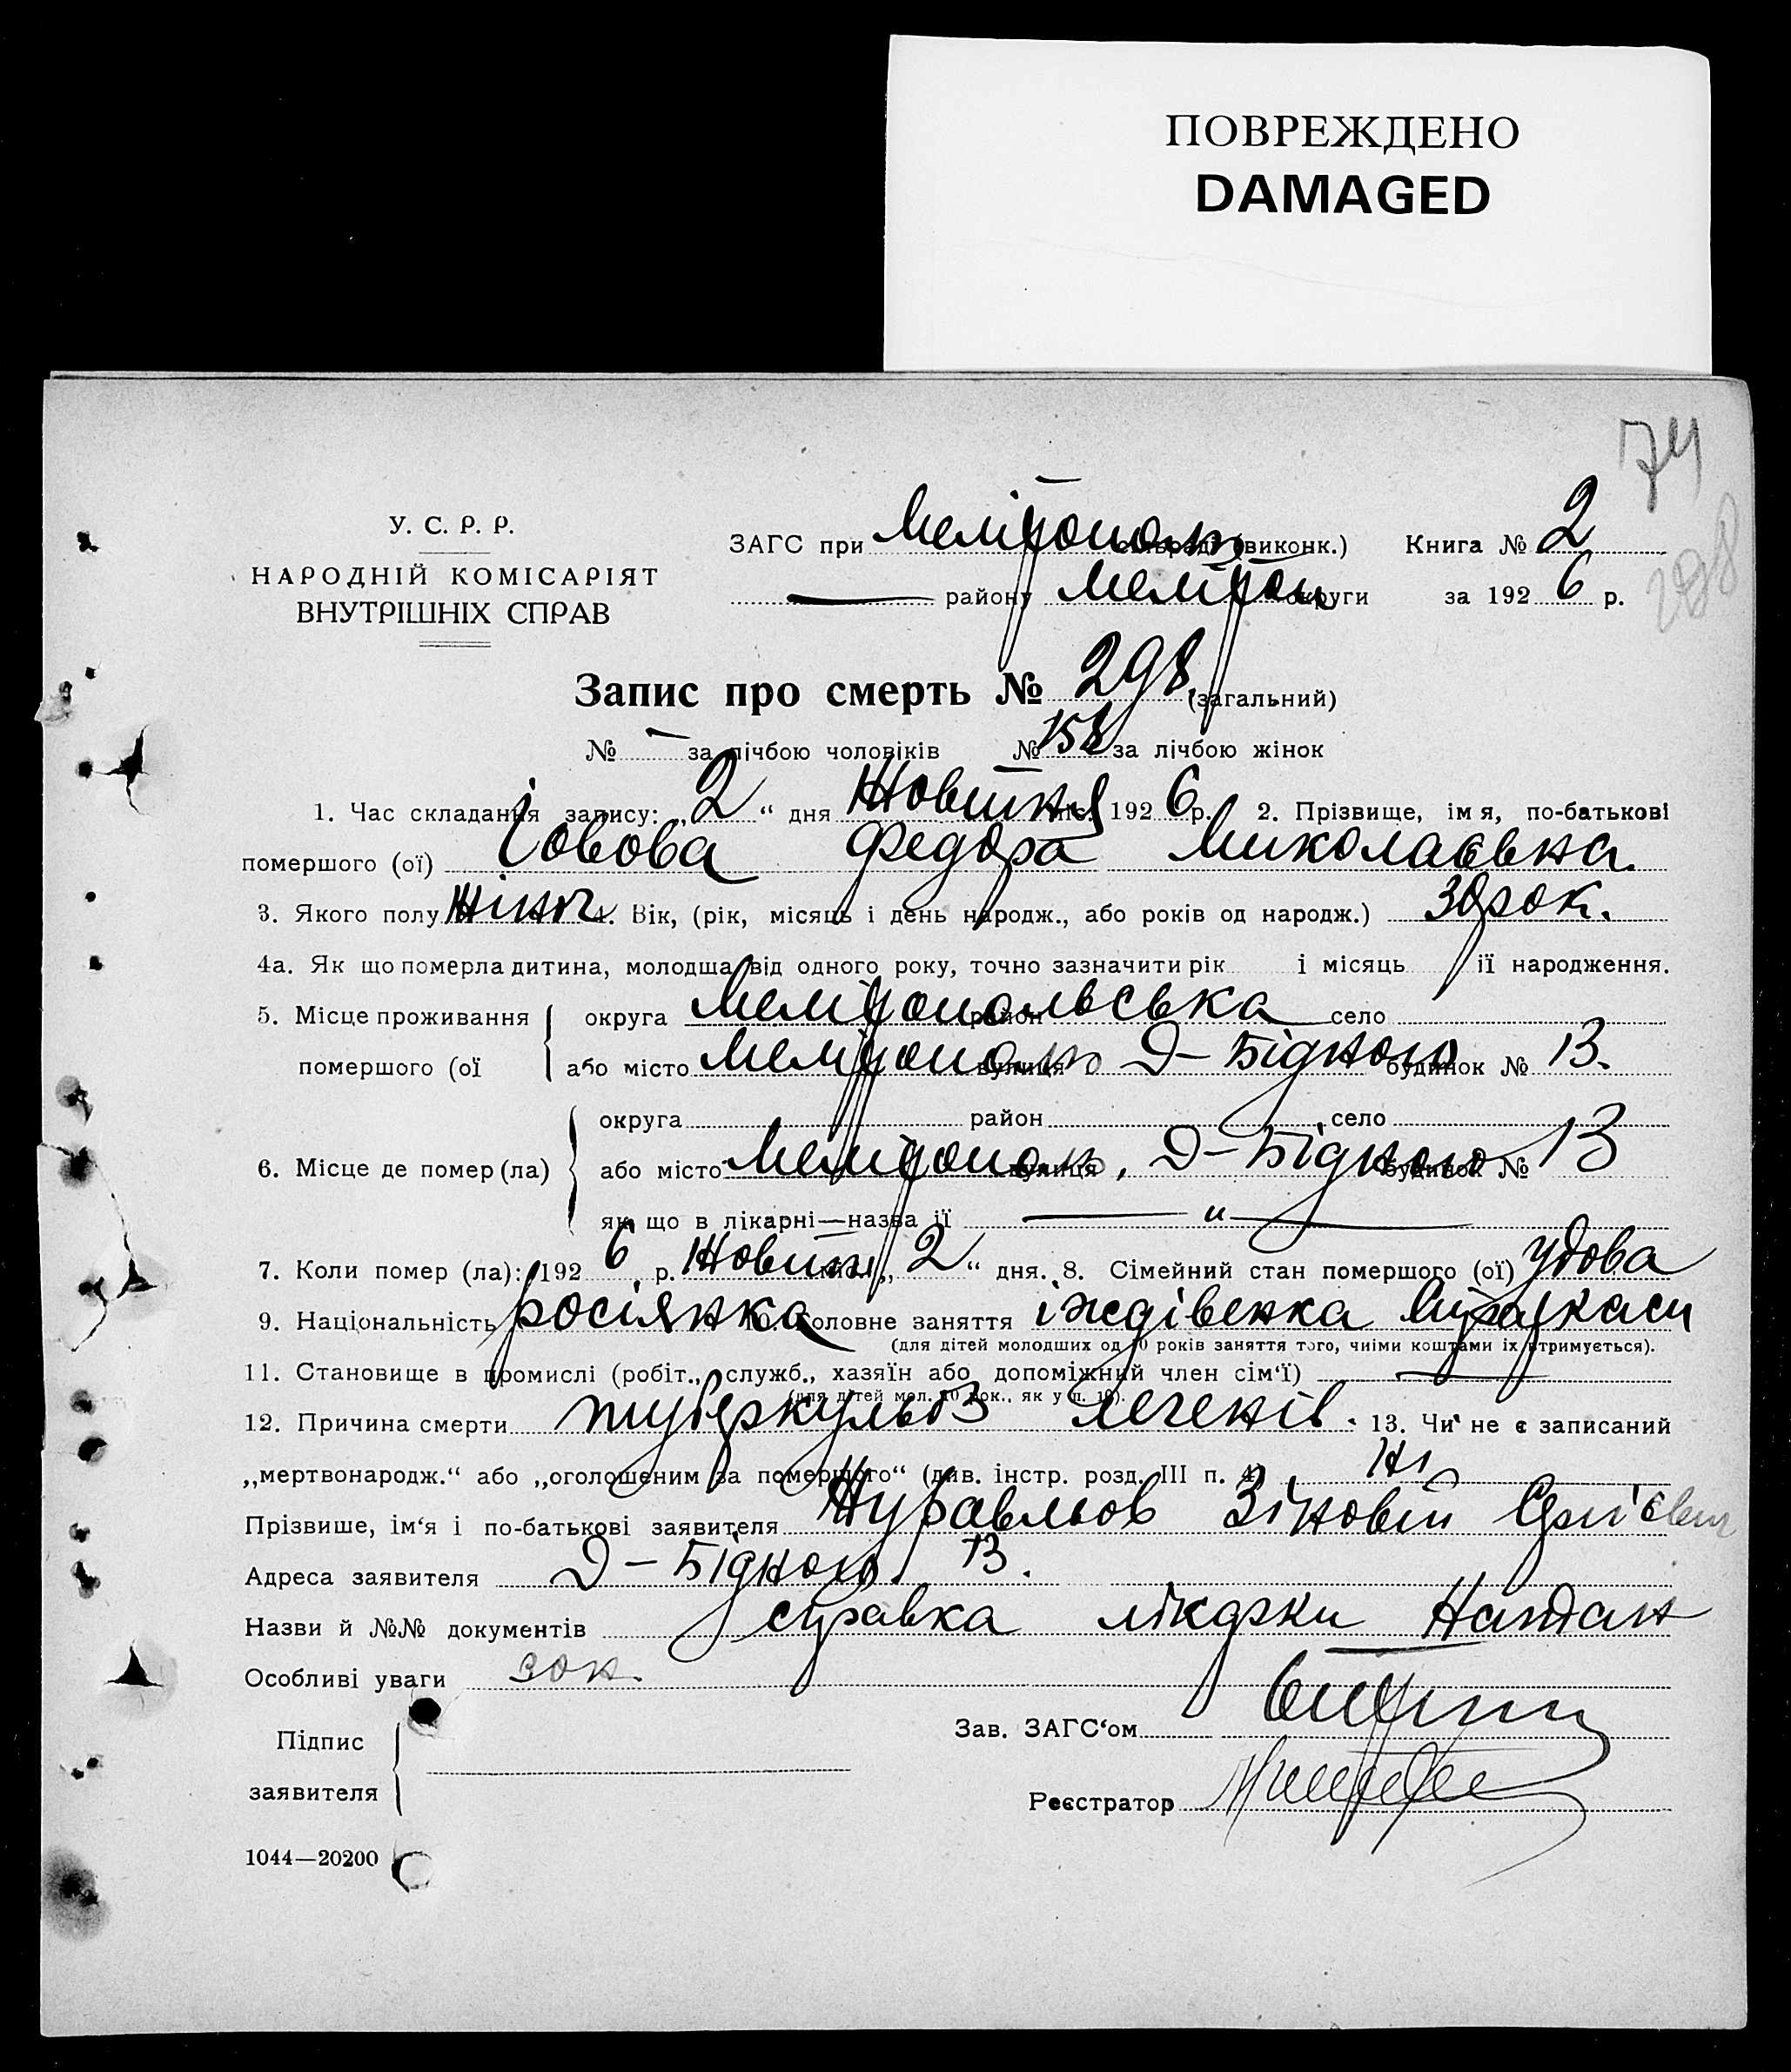 ПОВРЕЖДЕНО
DAMAGED
74
298
У. С. Р. Р.
НАРОДНІЙ КОМІСАРІЯТ
ВНУТРІШНІХ СПРАВ
ЗАГС при Мелітополь сільраді (виконк.) Книга № 2
— району Мелітоп округи за 1926 р.
Запис про смерть № 298 (загальний)
№ — за лічбою чоловіків № 158 за лічбою жінок
1. Час складання запису: „2“ дня Жовтня міс. 1926 р. 2. Прізвище, імя, по-батькові
помершого (ої) Іовова Федора Миколаєвна.
3. Якого полу Жіноч. 4. Вік, (рік, місяць і день народж., або років од народж.) 30 рок.
4а. Як що померла дитина, молодша від одного року, точно зазначити рік і місяць її народження.
5. Місце проживання округа Мелітопольська район село
помершого (ої або місто Мелітополь вулиця Д-Бідного будинок № 13.
округа район село
6. Місце де помер (ла) або місто Мелітополь, вулиця Д-Бідного будинок № 13
як що в лікарні—назва її — „ —
7. Коли помер (ла): 1926 р. Жовтн міс. „2“ дня. 8. Сімейний стан помершого (ої) удова
9. Національність росіянка 10. Головне заняття іждівенка Страхкаси
(для дітей молодших од 10 років заняття того, чиїми коштами їх утримується).
11. Становище в промислі (робіт., служб., хазяїн або допоміжний член сім‘ї) —
(для дітей мол. 10 рок., як у п. 10).
12. Причина смерти туберкульоз легенів. 13. Чи не є записаний
„мертвонародж.“ або „оголошеним за помершого“ (див. інстр. розд. III п. 4) Ні
Прізвише, ім‘я і по-батькові заявителя Журавльов Зіновій
Адреса заявителя Д-Бідного 13.
Назви й №№ документів справка лікарки Натан
Особливі уваги зок.
Підпис
заявителя
Зав. ЗАГС‘ом
Реєстратор
1044—20200